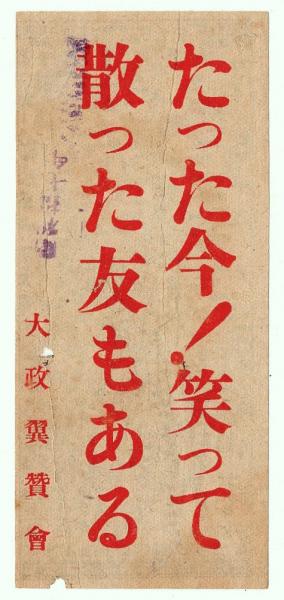 たった今!笑って
散った友もある
大政翼賛會